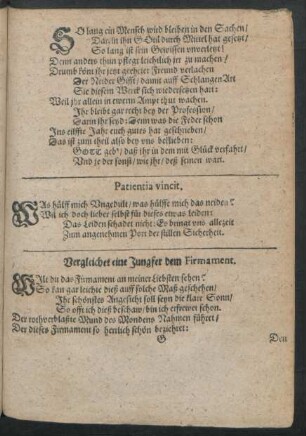 SO lang ein Mensch wird bleiben in den Sachen/
Darein ihn GOtt durch Mittel hat gesetzt/
So lang ist sein Gewissen unverletzt:
Denn anders thun pflegt leichtlich irr zu machen/
Drumb kön ihr jetzt geehrter Freund verlachen
Der Neider Gifft/ damit auff Schlangen Art
Sie diesem Werck sich widersetzen hart:
Weil ihr allein in ewrem Ampt thut wachen.
Ihr bleibt gar recht bey der Profession/
Darin ihr seyd: Denn was die Feder schon
Ins eilffte Jahr euch gutes hat geschrieben/
Das ist zum theil also bey uns beklieben:
GOTT geb'/ daß ihr in dem mit Glück verfahrt/
Und je der sonst/ wie ihr/ deß seinen wart.
Patientia vincit.
WAs hülff mich Ungedult/ was hülffe mich das neiden?
Wil ich doch lieber selbst für dieses etwas leiden:
Das Leiden schadet nicht: Es bringt uns allezeit
Zum angenehmen Port der stillen Sicherheit.
Vergleichet eine Jungfer dem Firmament.
WIlt du das Firmament an meiner Liebsten sehen?
So kan gar leichte diß auff solche Maß geschehen/
Ihr schönstes Angesicht soll seyn die klare Sonn/
So offt ich dieß beschaw/ bin ich erfrewet schon.
Der wolverblaßte Mund des Mondens Nahmen führet/
Der dieses Firmament so herrlich schön bezieret:
G
Den